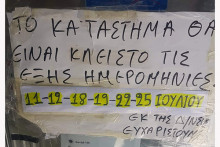 ΤΟ ΚΑΤΑΣΤΗΜΑ ΘΑ
ΕΙΝΑΙ ΚΛΕΙΣΤΟ ΤΙΣ
ΕΞΗΣ ΗΜΕΡΟΜΗΝΙΕΣ:
11-12-18-19-22-25 ΙΟΥΛΙΟΥ
ΕΚ ΤΗΣ Δ/ΝΣΗΣ
ΕΥΧΑΡΙΣΤΟΥΜΕ